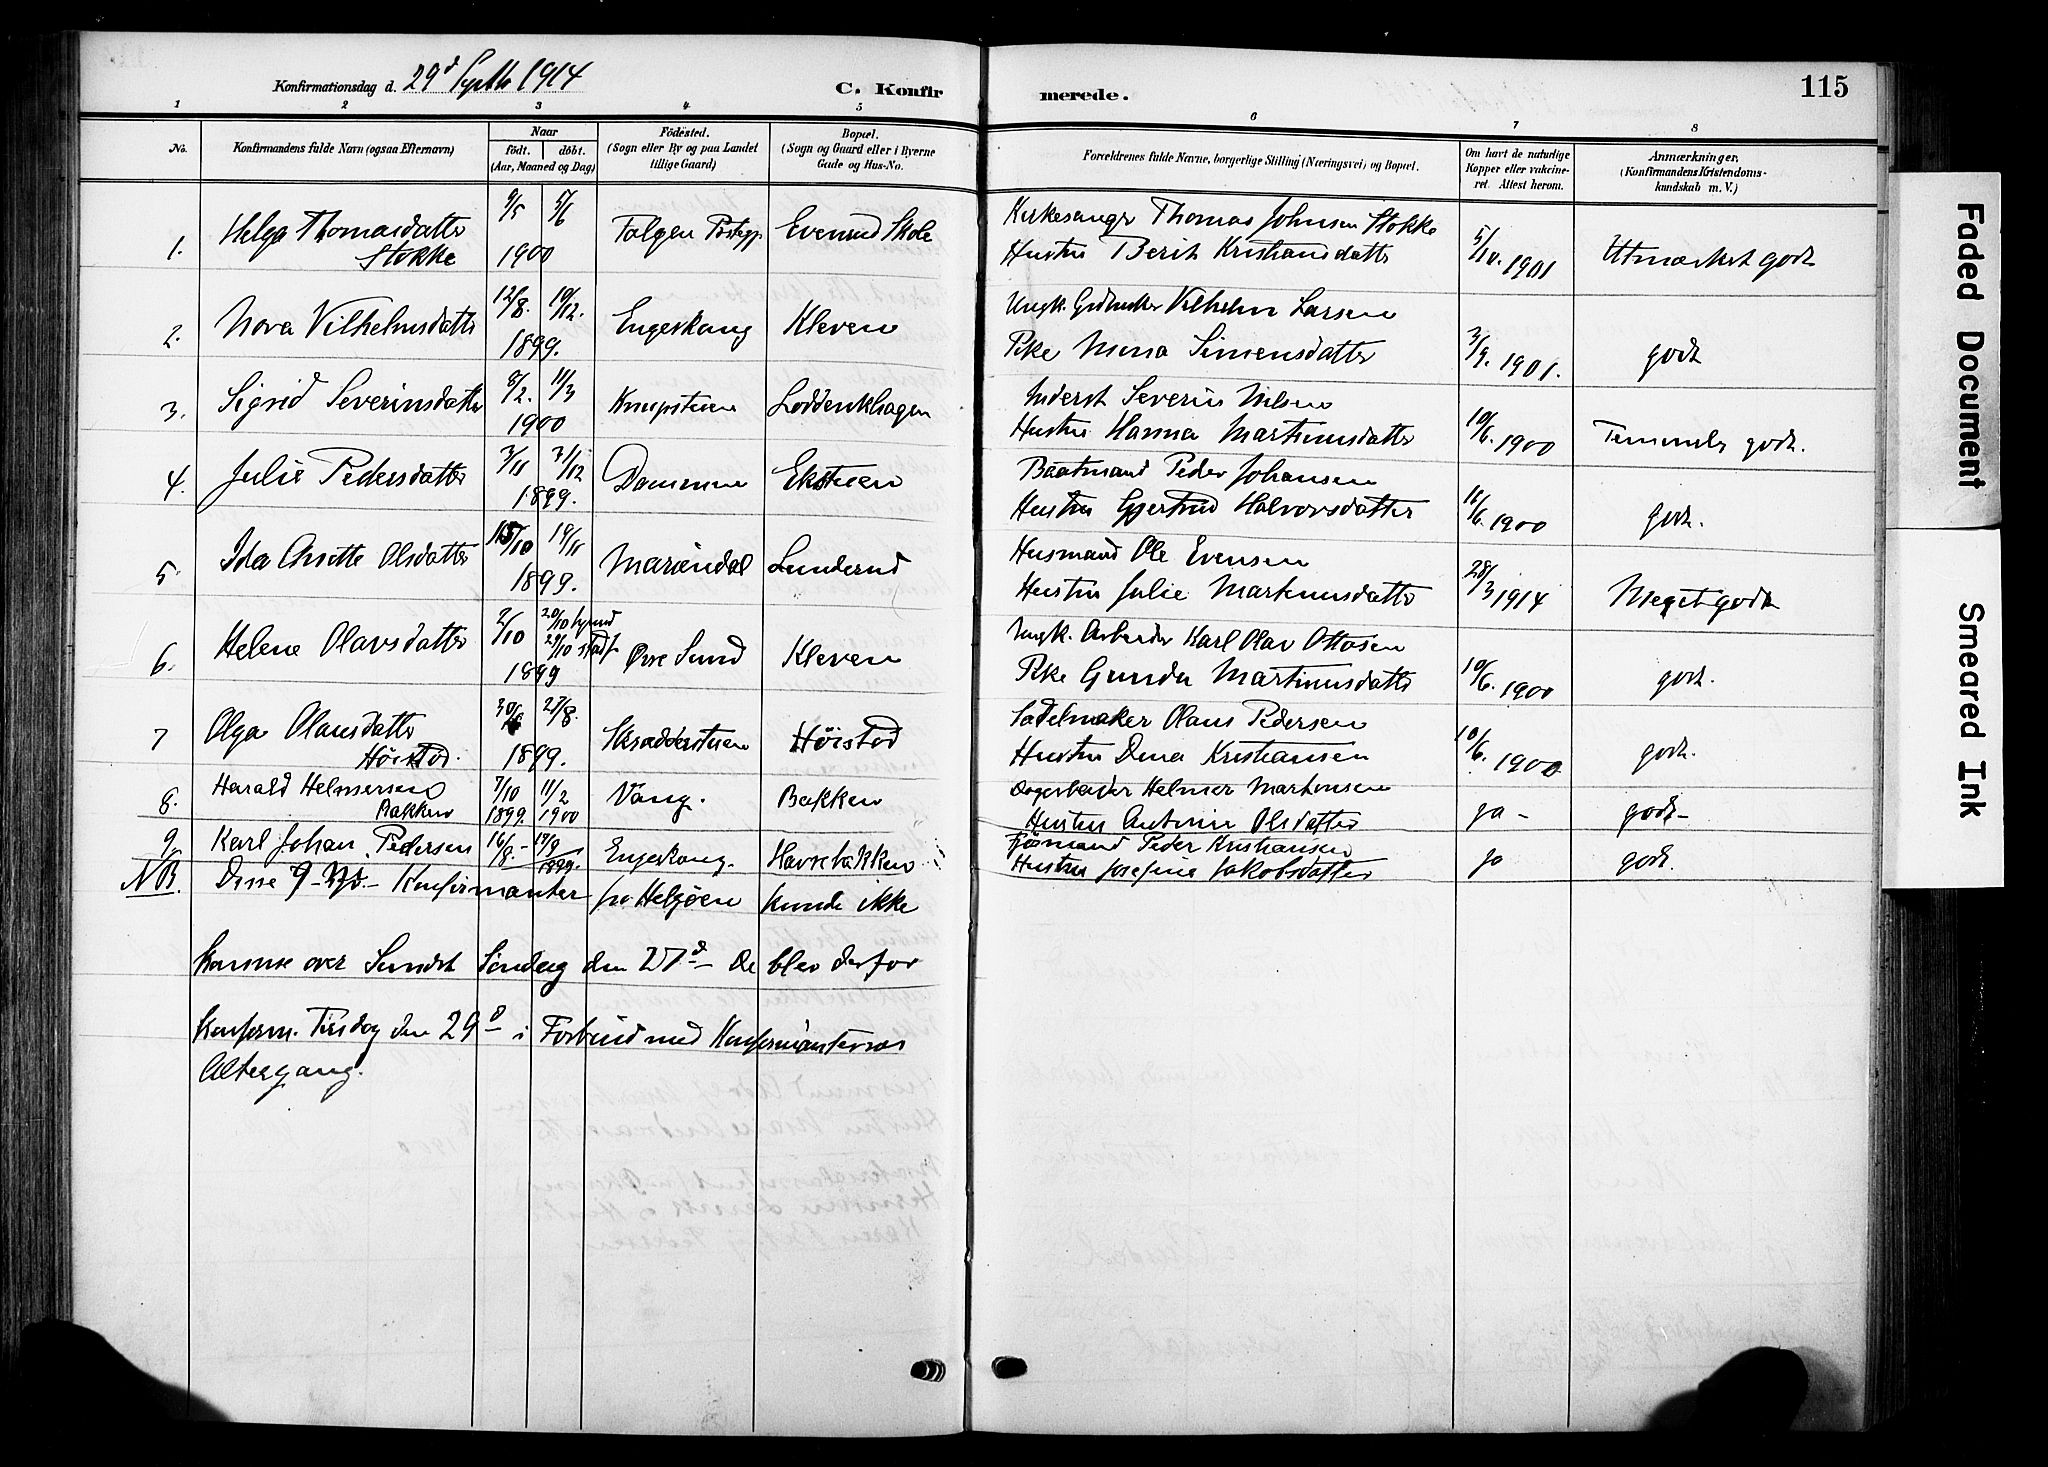 Konfirmationsdag d. 29d Septbr 1914
C. Konfirmerede.
115
1 2 3 4 5 6 7 8
No.
Konfirmandens fulde Navn (ogsaa Efternavn)
Naar
født. døbt.
(Aar, Maaned og Dag)
Fødested.
(Sogn eller By og paa Landet
tillige Gaard)
Bopæl.
(Sogn og Gaard eller i Byerne
Gade og Hus-No.
Forældrenes fulde Navne, borgerlige Stilling (Næringsvei) og Bopæl.
Om havt de naturlige
Kopper eller vakcine-
ret. Attest herom.
Anmærkninger.
(Konfirmandens Kristendoms-
kundskab m. V.)
1. Helga Thomasdatter Stokke 9/5 5/6 1900 Tolgen Prstgj. Evenrud Skole
Kirkesanger Thomas Johnsen Stokke
Hustru Berit Kristiansdatter 5/10. 1901 Utmærket godt
2. Nora Vilhelmsdatter 12/8. 10/12. 1899. Engeskaug Kleven
Ungk. Vilhelm Larsen
Pike Mina Simensdatter 3/9. 1901. godt
3. Sigrid Severinsdatter 8/2. 11/3 1900 Knupstuen Loddenkhagen
Inderst Severin Nilsen
Hustru Hanna Martinusdatter 10/6. 1900 Temmelig godt.
4. Julie Pedersdatter 3/11 31/12 1899. Dammen Ekstuen
Baatmand Peder Johansen
Hustru Gjertrud Halvorsdatter 11/6. 1900 godt.
5. Ida Anette Olsdatter 15/10 19/11 1899. Mariendal Lunderud
Husmand Ole Evensen
Hustru Julie Martinusdatter 28/3 1914 Meget godt
6. Helene Olavsdatter 2/10 20/10 29/10 stadf. 1899 Øvre Sund Kleven
Ungk. Arbeider Karl Olav Ottosen
Pike Gunda Martinusdatter 10/6. 1900 godt.
7 Olga Olausdatter Høistad. 30/6 27/8. 1899. Skræddertuen Høistad
Sadelmaker Olaus Pedersen
Hustru Dina Kristiansen 10/6. 1900 godt.
8. Harald Helmersen Bakken 7/10 1899. 11/2 1900 Vang. Bakken
Helmer Martinsen
Hustru Antonie Olsdatter ja - godt -
9. Karl Johan Pedersen 16/8. - 17/9 1899. Engeskaug. Havrebakken
Peder Kristiansen
Hustru Josefine Jakobsdatter ja godt.
NB. Disse 9 - - Konfirmanter fra Helgøen kunde ikke
komme over Sundet Søndag den 27d - De blev derfor
Konfirm. Tirsdag den 29d i Forbind med Konfirmanternes
Altergang.
Faded Document
Smeared Ink